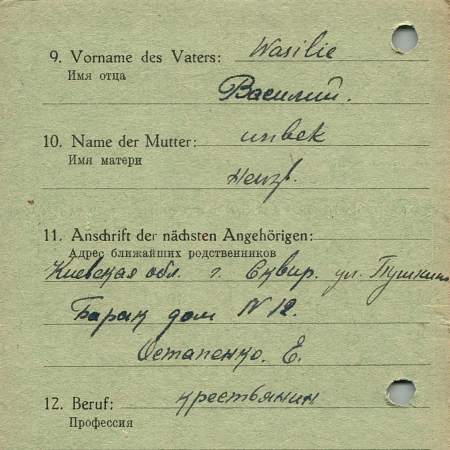 9. Vorname des Vaters: Wasilie
Имя отца
Василий.
10. Name der Mutter: unbek
Имя матери
Неизв.
11. Anschrift der nächsten Angehörigen:
Адрес ближайших родственников
Киевская обл. г. Сквир. ул. Пушкина
Барак дом N 12.
Остапенко. Е.
12. Beruf: крестьянин
Профессия